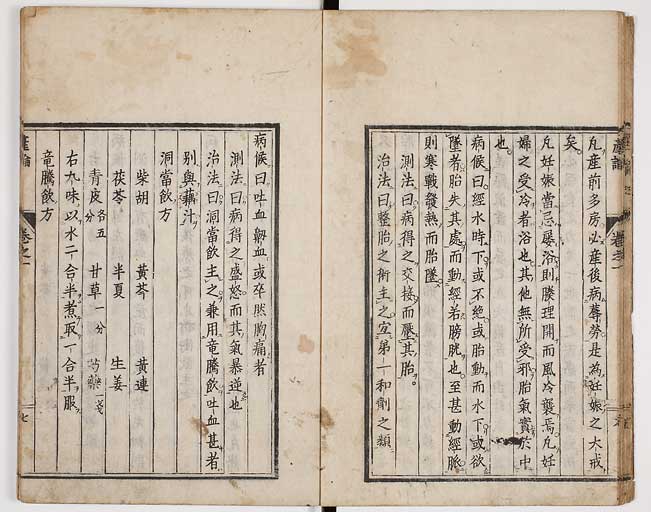 凡産前多房必産後病蓐勞是為妊娠之大戒
矣
凡妊娠當忌屡浴則腠理開而風冷襲焉凡妊
婦之受冷者浴也其他無所受邪胎氣實於中
也
病候曰經水時下或不絶或胎動而水下或欲
墜者胎失其處而動經若膀胱也至甚動經脈
則寒戰發熱而胎墜
測法曰病得之交接而壓其胎
治法曰整胎之術主之宜弟一和劑之類
産論
卷之一
病候曰吐血衂血或卒然胸痛者
測法曰病得之盛怒而其氣暴逆也
治法曰洞當飲主之兼用竜騰飲吐血甚者
别與藕汁
洞當飲方
柴胡 黃芩 黃連
茯苓 半夏 生姜
青皮各五分 甘草一分 芍藥一戔
右九味以水二合半煮取一合半服
竜騰飲方
産論
卷之一
七